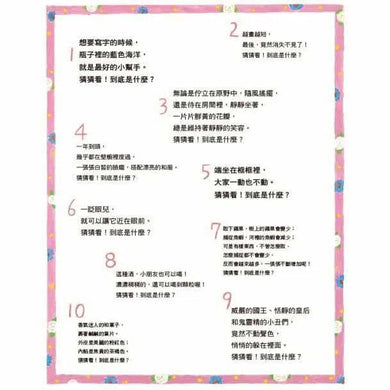 1
想要寫字的時候，
瓶子裡的藍色海洋，
就是最好的小幫手。
猜猜看！到底是什麼？
2
越畫越短，
最後，竟然消失不見了！
猜猜看！到底是什麼？
3
無論是佇立在原野中，隨風搖擺，
還是待在房間裡，靜靜坐著，
一片片鮮黃的花瓣，
總是維持著靜靜的笑容。
猜猜看！到底是什麼？
4
一年到頭，
幾乎都在壁櫥裡度過，
一張張白皙的臉龐，搭配漂亮的和服。
猜猜看！到底是什麼？
5
端坐在框框裡，
大家一動也不動。
猜猜看！到底是什麼？
6
一眨眼兒，
就可以讓它近在眼前。
猜猜看！到底是什麼？
7
取下蘋果，樹上的蘋果會變少；
捕捉魚蝦，河裡的魚蝦會減少；
可是有樣東西，不管怎麼取，
怎麼捕捉都不會變少，
反而會越來越多，一張張不斷增加呢！
猜猜看！到底是什麼？
8
這種酒，小朋友也可以喝！
濃濃稠稠的，還可以喝到顆粒喔！
猜猜看！到底是什麼？
9
威嚴的國王、恬靜的皇后
和鬼靈精的小丑們，
竟然不動聲色，
悄悄的躲在裡面。
猜猜看！到底是什麼？
10
香氣迷人的和菓子，
裹著鹹鹹的葉片，
外皮是美麗的粉紅色；
內餡是無黃的茶褐色。
猜猜看！到底是什麼？